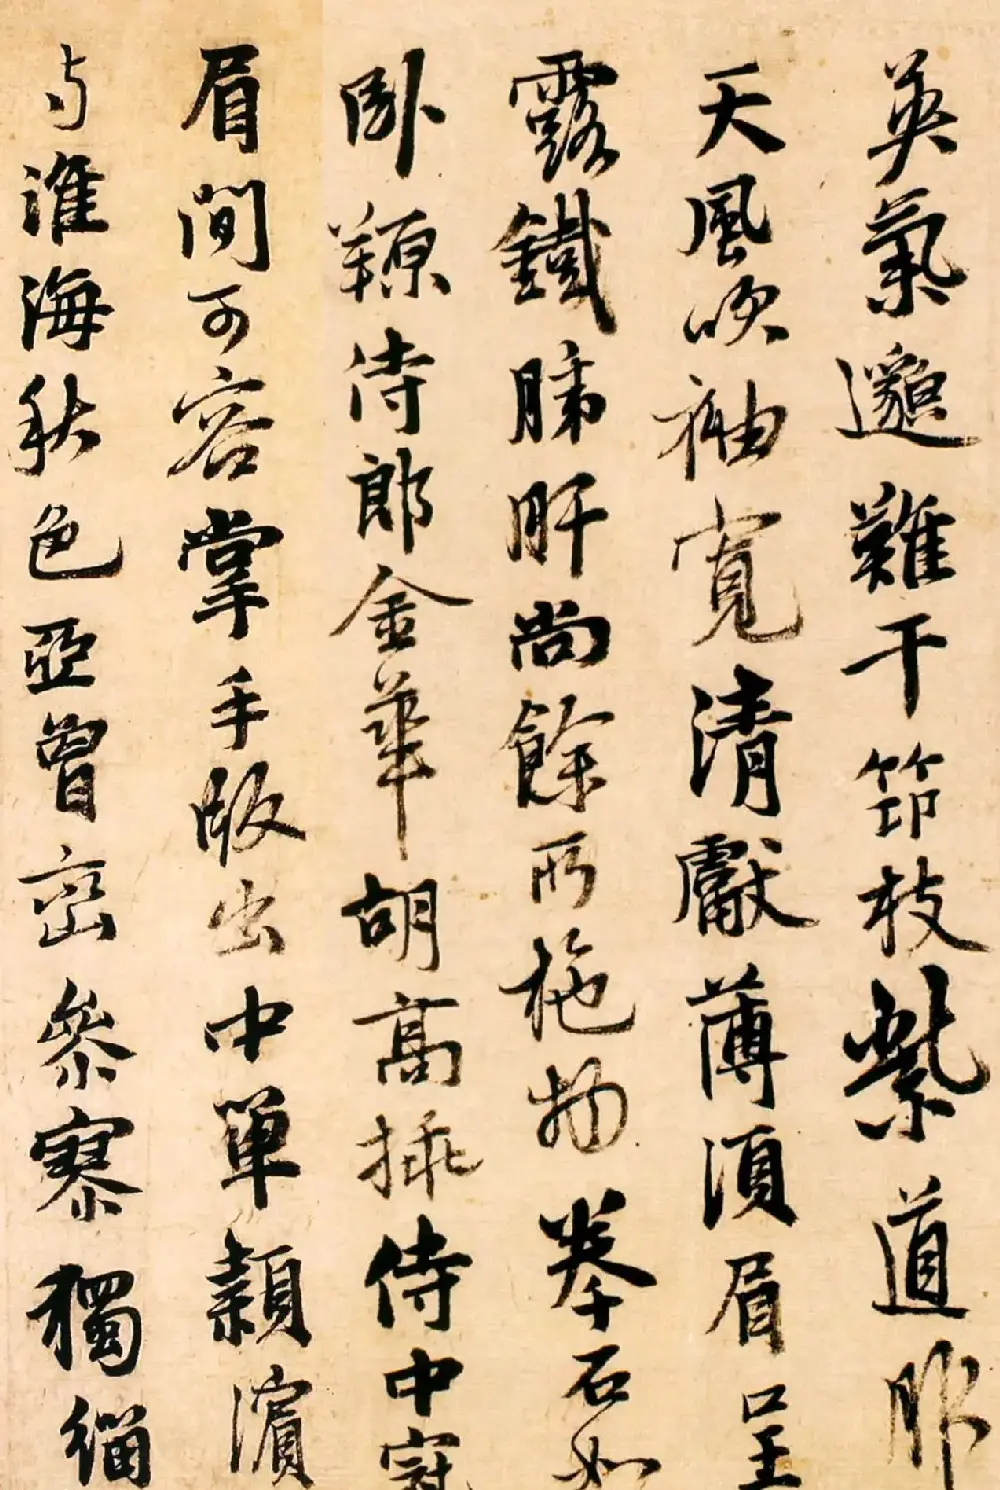 英氣邈難干笻枝紫道服
天風吹袖寬清獻薄須眉呈
露鐵肺肝尚餘所拖物拳石如
臥羱侍郎金華胡高插侍中冠
眉間可容掌手版出中單潁濱
与淮海秋色亞曾巒參寥獨緇